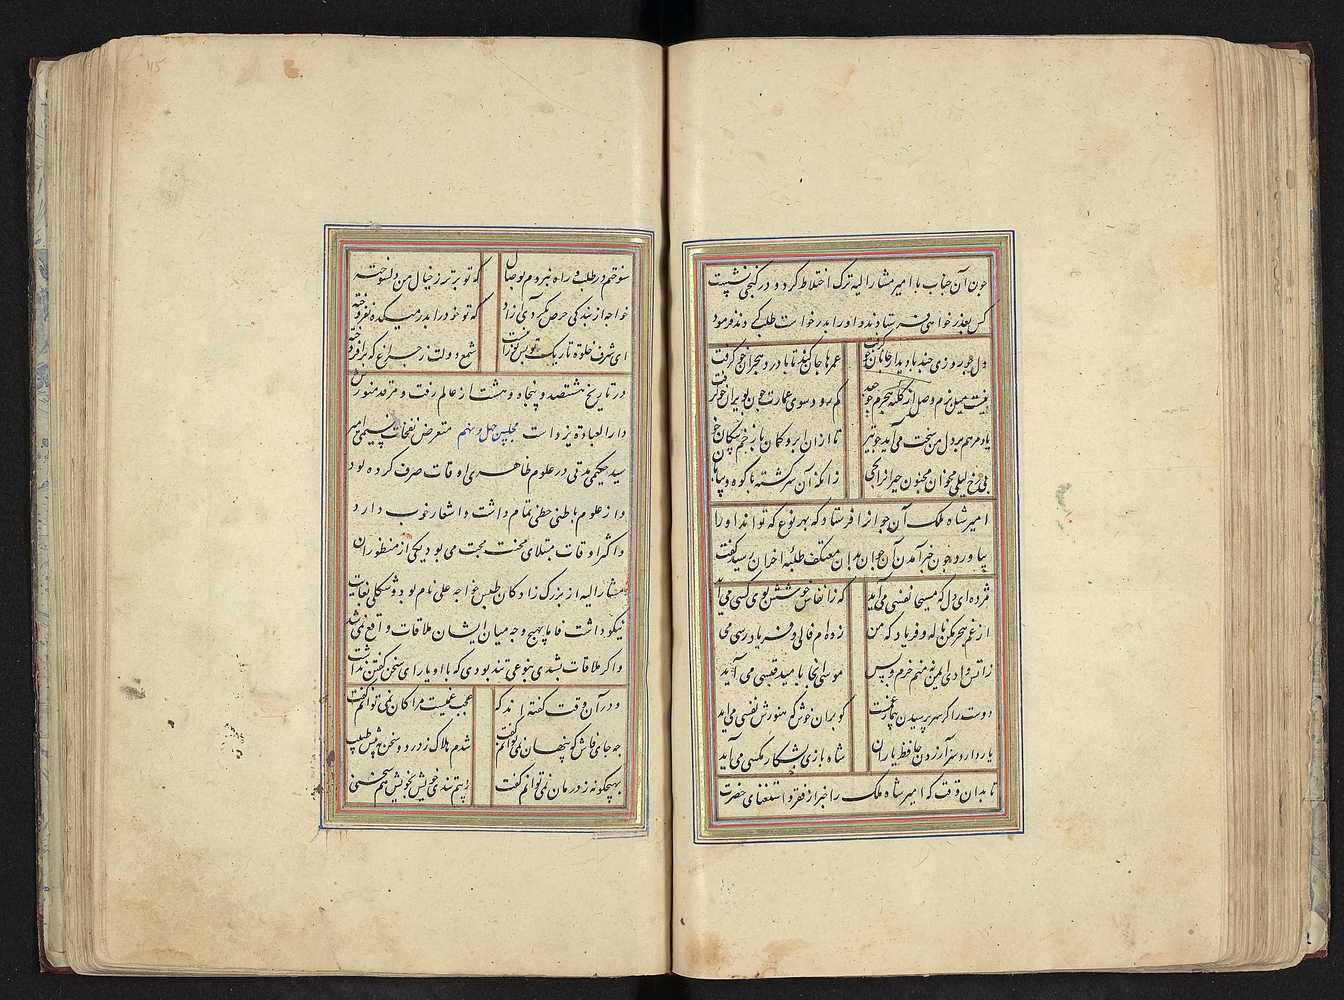 چون آن جناب با امیر مشارالیه ترک اختلاط کرد و در کنجی نشست
کس بعذر خواهی فرستادند و او را بدر خواست طلب کردند فرمود
عمرها جان کند تا با درد هجران خو گرفت
کم رود سوی عمارت چون بویران خو گرفت
یاد مرهم بر دل من سخت می آید چو تیر
تا ازان ابرو کمان با زخم پیکان خو گرفت
بی رخ لیلی مخوان مجنون حیرانرا بحی
زانکه آن سرگشته با کوه و بیابان
امیر شاه ملک آن جوانرا فرستاد که بهر نوع که تواند او را
بیاورد چون خبر آمدن آن جوان بدان معتکف طلبه احزان رسید گفت
مژده ای دل که مسیحا نفسی می آید
که ز انفاس خوشش بوی کسی می آید
از غم هجر مکن ناله و فریاد که من
زده ام فالی و فریادرسی می
ز آتش وادی ایمن نه منم خرم و بس
موسی اینجا بامید قبسی می آید
دوست را گر سر پرسیدن بیمار غمست
گو بران خوش که هنوزش نفسی می آید
یار دارد سر آزردن حافظ یاران
شاه بازی بشکار مکسی می آید
تا بدان وقت که امیر شاه ملک را خبر از فقر و استغنای حضرت
115
سوختم در طلب و راه نبردم بوصال
که تو برتر ز خیال من دلسوخته
خواجه از بندگی حرص نگر آی زاد
که تو خود را بدر میکده بفروخته
ای شرف خلوة تاریک تو بس نورانیست
شمع دولت ز چراغ که برافروخته
در تاریخ هشتصد و پنجاه و هشت از عالم رفت و مرقد منورش
دار العباده یزد است مجلس چهل و نهم متعرض نفحات نسیمی امیر
سید حکیمی مدتی در علوم ظاهری اوقات صرف کرده بود
و از علوم باطنی حظی تمام داشت و اشعار خوب دارد
و اکثر اوقات مبتلای محنت محبت می بود یکی از منظوران
مشارالیه از بزرگ زادگان طبس خواجه علی نام بود و شکلی بغایت
نیکو داشت فاما بهیچ وجه میان ایشان ملاقات واقع نمی شد
و اگر ملاقات بشدی بنوعی تند بودی که با او یارای سخن گفتن نداشت
و در آن وقت گفته اند که
عجب غمیست مرا کان نمی توانم گفت
چه جای فاش که پنهان نمی توانم گفت
شدم هلاک ز درد و سخن به پیش طبیب
بهیچگونه ز درمان نمی توانم گفت
ز بیم تندی خویش بخویش هم سخنی